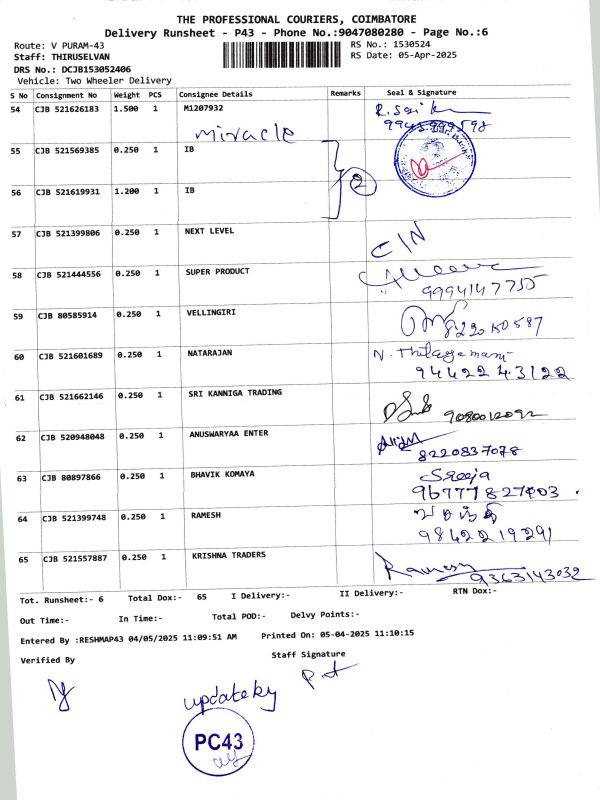 THE PROFESSIONAL COURIERS, COIMBATORE
Delivery Runsheet - P43 - Phone No.:9047080280 - Page No.:6
Route: V PURAM-43 RS No.: 1530524
Staff: THIRUSELVAN RS Date: 05-Apr-2025
DRS No.: DCJB153052406
Vehicle: Two Wheeler Delivery
S No Consignment No Weight PCS Consignee Details Remarks Seal & Signature
54 CJB 521626183 1.500 1 M1207932
miracle
55 CJB 521569385 0.250 1 IB
2
56 CJB 521619931 1.200 1 IB
57 CJB 521399806 0.250 1 NEXT LEVEL
58 CJB 521444556 0.250 1 SUPER PRODUCT
9994147755
59 CJB 80585914 0.250 1 VELLINGIRI
60 CJB 521601689 0.250 1 NATARAJAN
94422 43122
61 CJB 521662146 0.250 1 SRI KANNIGA TRADING
62 CJB 520948048 0.250 1 ANUSWARYAA ENTER
8220837078
63 CJB 80897866 0.250 1 BHAVIK KOMAYA Sreeja
64 CJB 521399748 0.250 1 RAMESH
9842219291
65 CJB 521557887 0.250 1 KRISHNA TRADERS Ramesh
9363143032
Tot. Runsheet:- 6 Total Dox:- 65 I Delivery:- II Delivery:- RTN Dox:-
Out Time:- In Time:- Total POD:- Delvy Points:-
Entered By :RESHMAP43 04/05/2025 11:09:51 AM Printed On: 05-04-2025 11:10:15
Verified By Staff Signature
update by
PC43